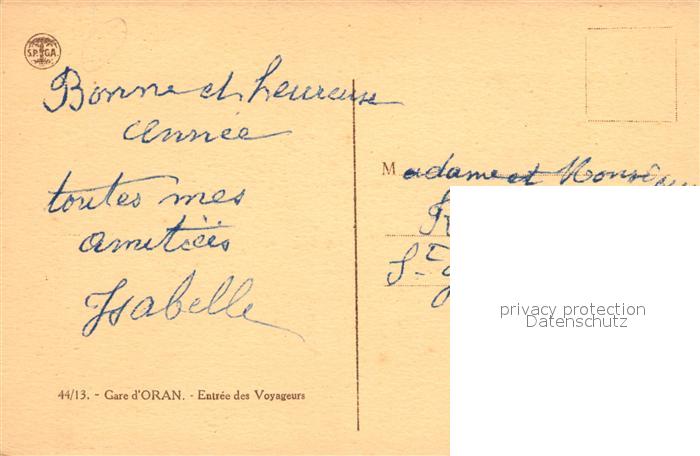 S.P.G.A.
Bonne et heureuse
année
toutes mes
amitiés
Isabelle
44/13. - Gare d'ORAN. - Entrée des Voyageurs
Madame et
privacy protection
Datenschutz